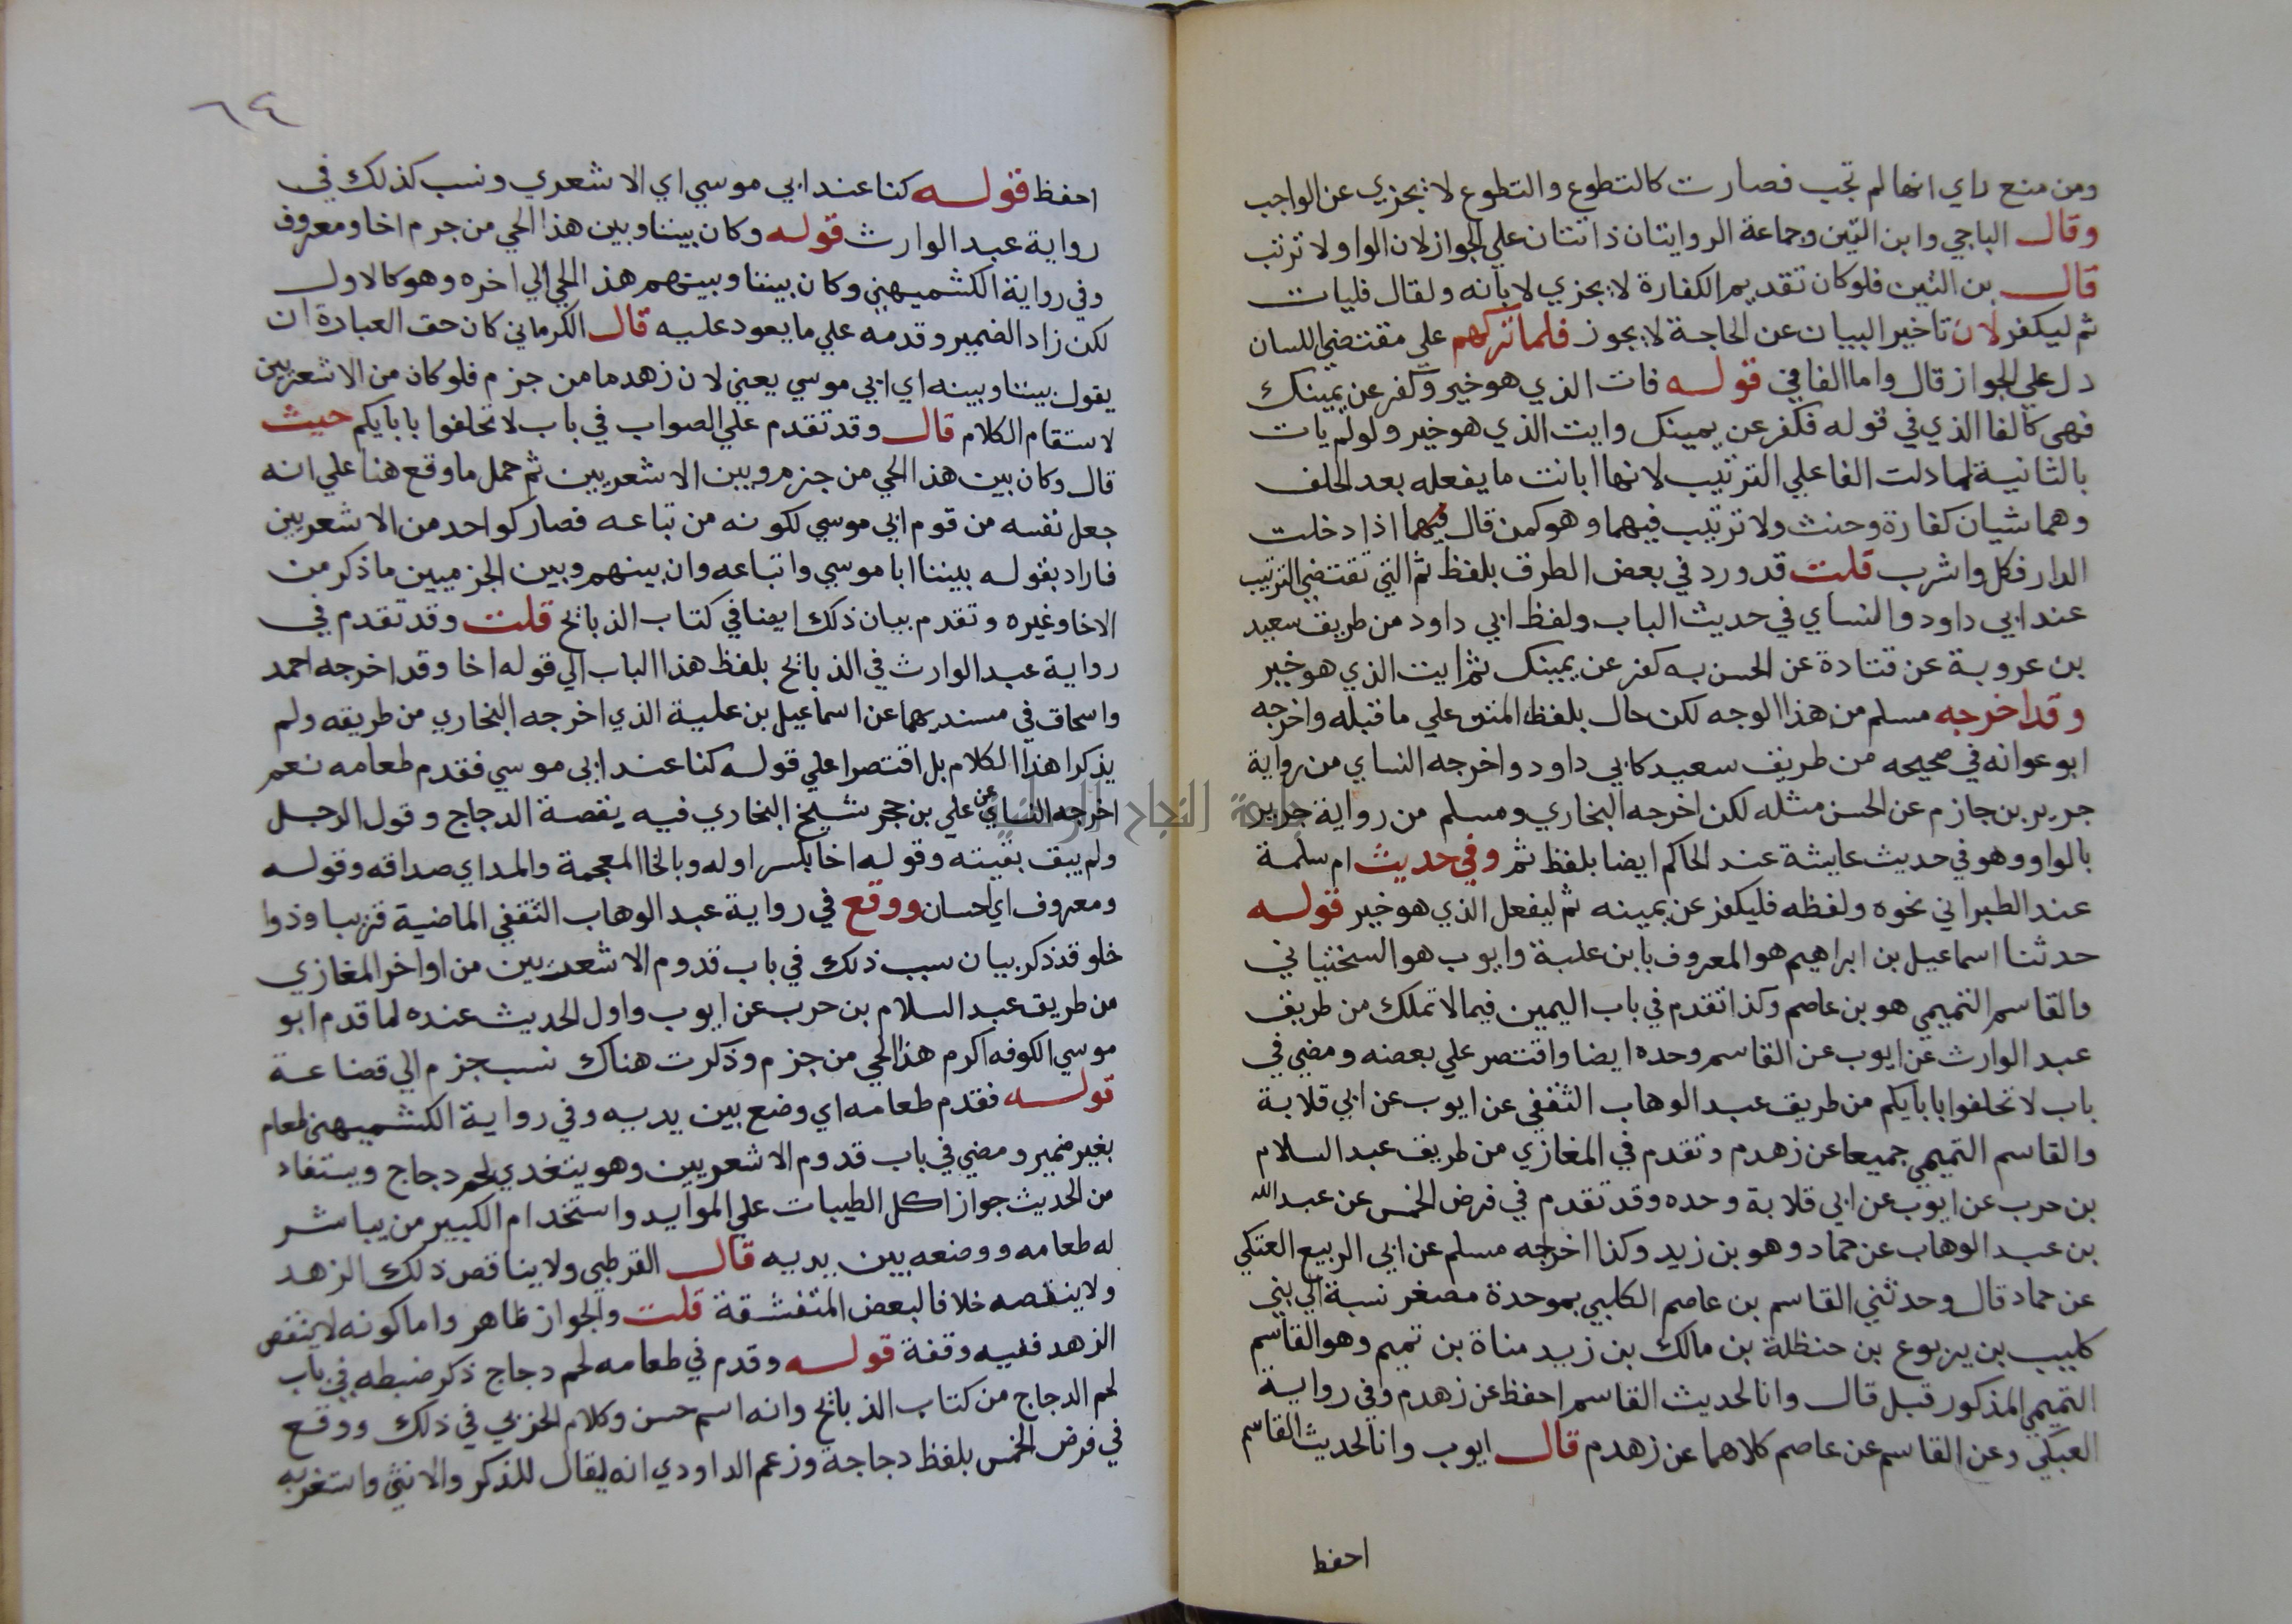 ومن منع راي انها لم تجب فصارت كالتطوع والتطوع لا يجزي عن الواجب
وقال الباجي وابن التين وجماعة الروايتان ذانتان علي الجواز لان الواو لا ترتب
قال بن التين فلو كان تقديم الكفارة لا يجزي لابانه ولقال فليات
ثم ليكفر لان تاخير البيان عن الحاجة لا يجوز فلما تركهم علي مقتضي اللسان
دل علي الجواز قال واما الفا في قوله فات الذي هو خير وكفر عن يمينك
فهي كالفا الذي في قوله فكفر عن يمينك وايت الذي هو خير ولو لم يات
بالثانية لما دلت الفا علي الترتيب لانها ابانت ما يفعله بعد الحلف
وهما شيان كفارة وحنث ولا ترتيب فيهما وهو كمن قال فيهما اذا دخلت
الدار فكل واشرب قلت قد ورد في بعض الطرق بلفظ ثم التي تقتضي الترتيب
عند ابي داود والنساي في حديث الباب ولفظ ابي داود من طريق سعيد
بن عروبة عن قتادة عن الحسن به كفر عن يمينك ثم ايت الذي هو خير
وقد اخرجه مسلم من هذا الوجه لكن حال بلفظ المتن علي ما قبله واخرجه
ابو عوانه في صحيحه من طريق سعيد كابي داود واخرجه النساي من رواية
جرير بن جازم عن الحسن مثله لكن اخرجه البخاري ومسلم من رواية جرير
بالواو وهو في حديث عايشة عند الحاكم ايضا بلفظ ثم وفي حديث ام سلمة
عند الطبراني نحوه ولفظه فليكفر عن يمينه ثم ليفعل الذي هو خير قوله
حدثنا اسماعيل بن ابراهيم هو المعروف بابن علية وايوب هو السختياني
والقاسم التميمي هو بن عاصم وكذا تقدم في باب اليمين فيما لا تملك من طريق
عبد الوارث عن ايوب عن القاسم وحده ايضا واقتصر علي بعضه ومضي في
باب لا تحلفوا بابايكم من طريق عبد الوهاب الثقفي عن ايوب عن ابي قلابة
والقاسم التميمي جميعا عن زهدم وتقدم في المغازي من طريق عبد السلام
بن حرب عن ايوب عن ابي قلابة وحده وقد تقدم في فرض الخمس عن عبد الله
بن عبد الوهاب عن حماد وهو بن زيد وكذا اخرجه مسلم عن ابي الربيع العتكي
عن حماد قال وحدثني القاسم بن عاصم الكليبي بموحدة مصغر نسبة الي بني
كليب بن يربوع بن حنظلة بن مالك بن زيد مناة بن تميم وهو القاسم
التميمي المذكور قبل قال وانا لحديث القاسم احفظ عن زهدم وفي رواية
العتكي وعن القاسم عن عاصم كلاهما عن زهدم قال ايوب وانا لحديث القاسم
احفظ
٦٤
احفظ قوله كنا عند ابي موسي اي الاشعري ونسب كذلك في
رواية عبد الوارث قوله وكان بيننا وبين هذا الحي من جرم اخا ومعروف
وفي رواية الكشميهني وكان بيننا وبينهم هذا الحي الي اخره وهو كالاول
لكن زاد الضمير وقدمه علي ما يعود عليه قال الكرماني كان حق العبادة ان
يقول بيننا وبينه اي ابي موسي يعني لان زهدما من جزم فلو كان من الاشعريين
لاستقام الكلام قال وقد تقدم علي الصواب في باب لا تحلفوا بابايكم حيث
قال وكان بين هذا الحي من جزم وبين الاشعريين ثم حمل ما وقع هنا علي انه
جعل نفسه من قوم ابي موسي لكونه من تباعه فصار كواحد من الاشعريين
فاراد بقوله بيننا ابا موسي واتباعه وان بينهم وبين الجزميين ما ذكر من
الاخا وغيره وتقدم بيان ذلك ايضا في كتاب الذبائح قلت وقد تقدم في
رواية عبد الوارث في الذبائح بلفظ هذا الباب الي قوله اخا وقد اخرجه احمد
واسحاق في مسنديهما عن اسماعيل بن علية الذي اخرجه البخاري من طريقه ولم
يذكرا هذا الكلام بل اقتصرا علي قوله كنا عند ابي موسي فقدم طعامه نعم
اخرجه النساي عن علي بن حجر شيخ البخاري فيه بقصة الدجاج وقول الرجل
ولم يبق بقيته وقوله اخا بكسر اوله وبالخا المعجمة والمد اي صداقه وقوله
ومعروف اي احسان ووقع في رواية عبد الوهاب الثقفي الماضية قريبا وذوا
خلو قد ذكر بيان سبب ذلك في باب قدوم الاشعريين من اواخر المغازي
من طريق عبد السلام بن حرب عن ايوب واول الحديث عنده لما قدم ابو
موسي الكوفه اكرم هذا الحي من جزم وذكرت هناك نسب جزم الي قضاعة
قوله فقدم طعامه اي وضع بين يديه وفي رواية الكشميهني طعام
بغير ضمير ومضي في باب قدوم الاشعريين وهو يتغدي لحم دجاج ويستفاد
من الحديث جواز اكل الطيبات علي الموايد واستخدام الكبير من يباشر
له طعامه ووضعه بين يديه قال القرطبي ولا يناقض ذلك الزهد
ولا ينقصه خلافا لبعض المتفشقة قلت والجواز ظاهر واما كونه لا ينقص
الزهد ففيه وقفة قوله وقدم في طعامه لحم دجاج ذكر ضبطه في باب
لحم الدجاج من كتاب الذبائح وانه اسم حسن وكلام الحربي في ذلك ووقع
في فرض الخمس بلفظ دجاجة وزعم الداودي انه يقال للذكر والانثي واستغربه
جامعة النجاح الوطنية